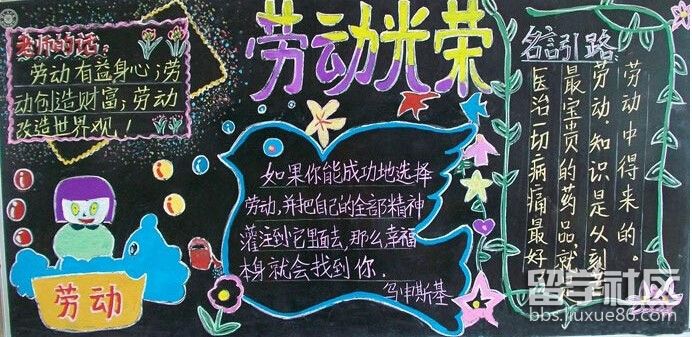 劳动光荣
老师的话:
劳动有益身心;劳
动创造财富;劳动
改造世界观!
劳动
如果你能成功地选择
劳动,并把自己的全部精神
灌注到它里面去,那么幸福
本身就会找到你.
乌申斯基
名言引路
医治一切病痛最好
最宝贵的药品,就
劳动,知识是从刻
劳动中得来的。
留学社区
bbs.liuxue86.com